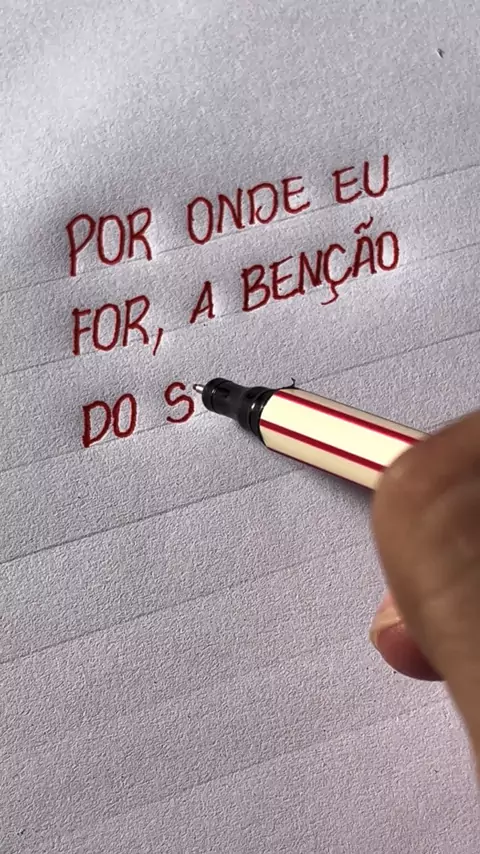 POR ONDE EU
FOR, A BENÇÃO
DO S